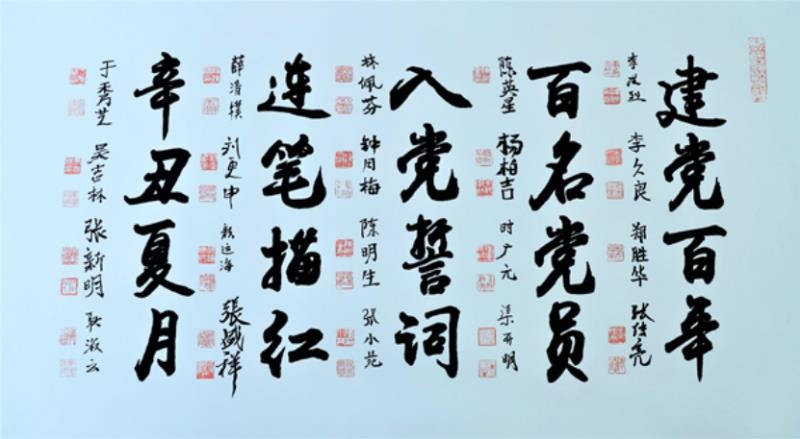 建党百年
李久良
郑胜华
张仕亮
百名党员
陈英星
杨柏吉
时广元
渠开明
入党誓词
林佩芬
钟月梅
陈明生
张小苑
连笔描红
薛清横
刘更申
张盛祥
辛丑夏月
于秀芝
吴吉林
张新明
耿淑云